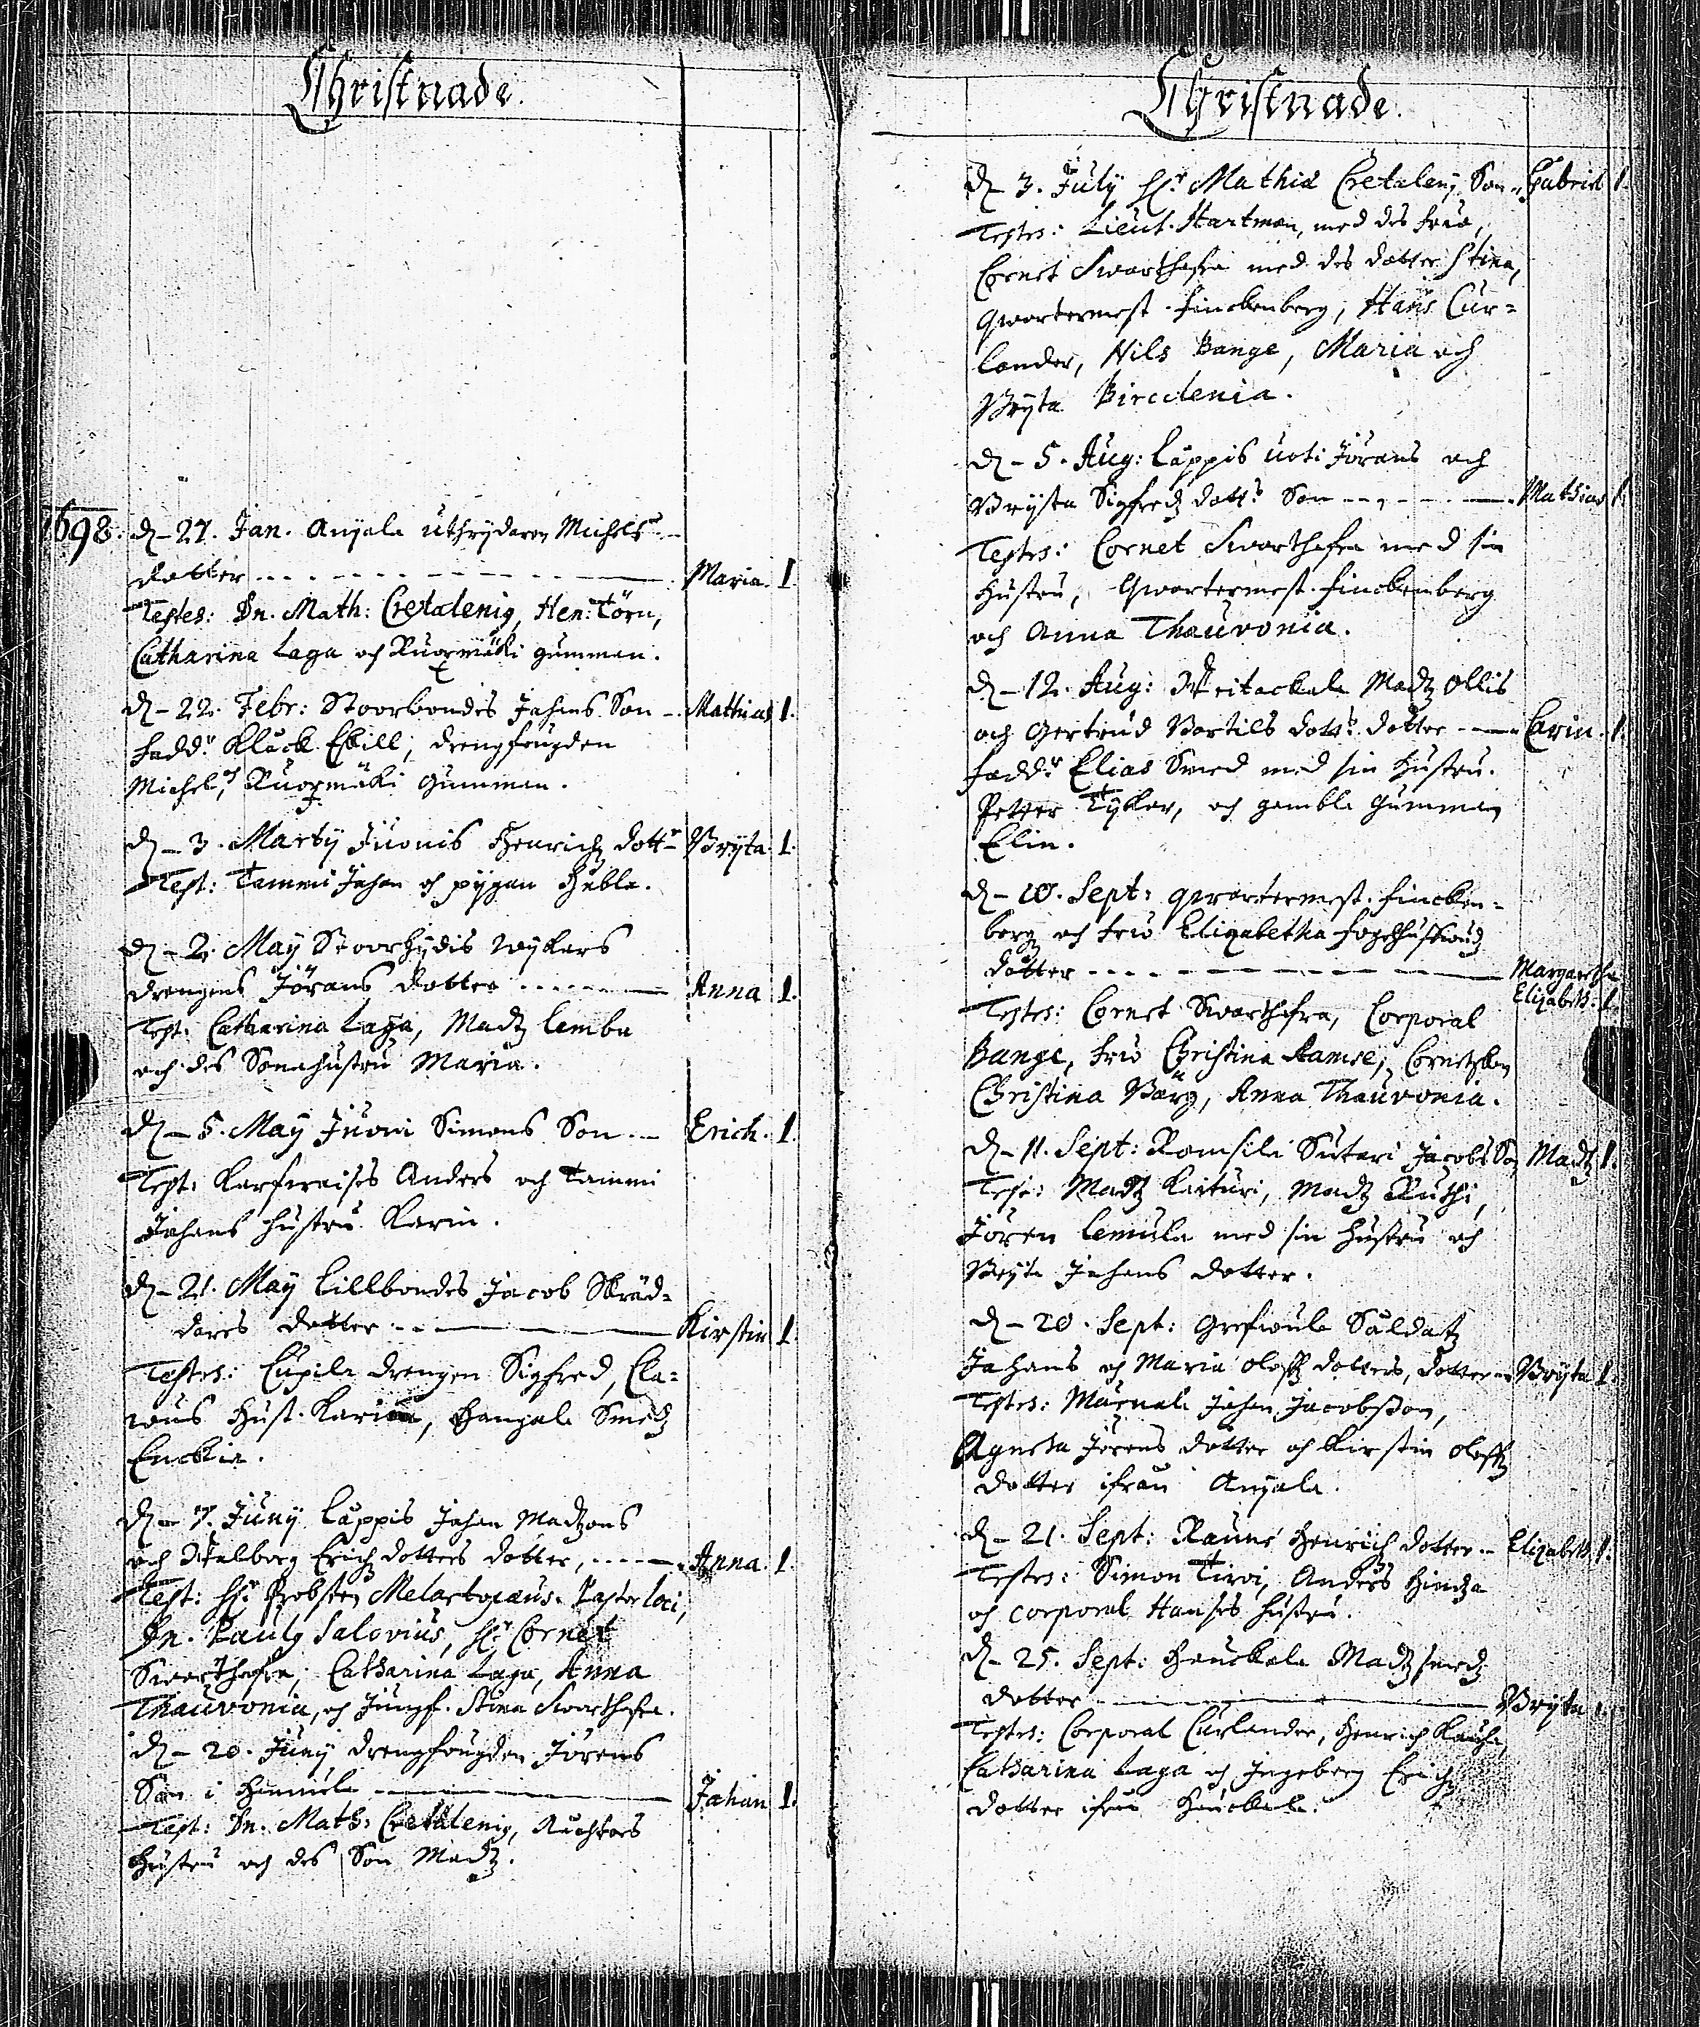 Christnade.
1698. d. 27. Jan. Anjala uthrydaren Michels
dotter Maria. 1.
Testes: Dn. Math: Cretalenig, Hen: Törn,
Catharina Laga och Kuormäki gumman.
d. 22. Febr: Stoorbondes Jahans Son Mathias 1.
fadd: Kläck Eskill, drengfougden
Michel, Kuormäki Gumman.
d. 3. Martij Juonis Henrichz dott. Bryta 1.
Test: Tammi Johan och pygan Hebla.
d. 2. May Stoorhydis Wykars
drengens Jörans dotter Anna 1.
Test: Catharina Laga, Madz Lemba
och des Sonahustru Maria.
d. 5. May Juoni Simons Son Erich. 1.
Test: Anders och Tammi
Johans hustru Karin.
d. 21. May Lillbondes Jacob Skräd-
dares dotter Kirstin 1.
Testes: Eupila drengen Sigfred, Cla-
wus Hust. Karin, Smedz
Enckia.
d. 7. Juny Lappis Johan Madzons
och Walborg Erichz dotters dotter, Anna. 1.
Test: Hr. Probsten Melartopæus. Pastor loci,
Dn. Paulg Salovius, Hr Cornet
Swarthafra, Catharina Laga, Anna
Thauvonia, och Jungf. Stina Swarthafra.
d. 20. Juny drengfougden Jörens
Son i Hommila Johan 1.
Test: Dn. Math: Cretalenig,
Hustru och des Son Madz.
Christnade.
d. 3. July Hr. Mathiæ Cretalenij Son Gabriel 1.
Testes: Lieut. Hartman, med des fruo,
Cornet Swarthafra med des dotter Stina,
Qwartermest. Finckenberg, Hans Cur-
lander, Nils Bange, Maria och
Bryta Circclenia.
d. 5. Aug: Lappis Uoti Jörans och
Bryta Sigfredz dott: Son Mathias 1.
Testes: Cornet Swarthafra med sin
hustru, Qwartermest. Finckenberg
och Anna Thauvonia.
d. 12. Aug: Madz Ollis
och Gertrud Bertils dott: dotter Carin. 1.
fadd: Elias Smed med sin hustru.
Petter Tykar, och gamble Gumman
Elin.
d. 10. Sept: qwartermest. Fincken-
berg och fruo Elizabetha
dotter Margaretha
Elizabeth: 1.
Testes: Cornet Swarthafra, Corporal
Bange, fruo Christina Ramse,
Christina Bärg, Anna Thauvonia.
d. 11. Sept: Ramsila Sutari Jacobs Son Madz 1.
Test: Madz Kaituri, Madz Ruthi,
Jören Lemula med sin hustru och
Bryta Johans dotter.
d. 20. Sept: Saldatz
Johans och Maria Oloffz dotters, dotter Bryta 1.
Testes: Johan Jacobsson,
Agneta Jörens dotter och Kirstin Oloffz
dotter ifrån Anjala.
d. 21. Sept: Henrichz dotter Elizabeth 1.
Testes: Simon Tirvi, Anders
och Corporal Hanses hustru.
d. 25. Sept: Hauckala Madz Smedz
dotter Bryta 1.
Testes: Corporal Curlander, Henrich Rausa,
Catharina Laga och Ingeborg Erichz
dotter ifrån Hauckala.